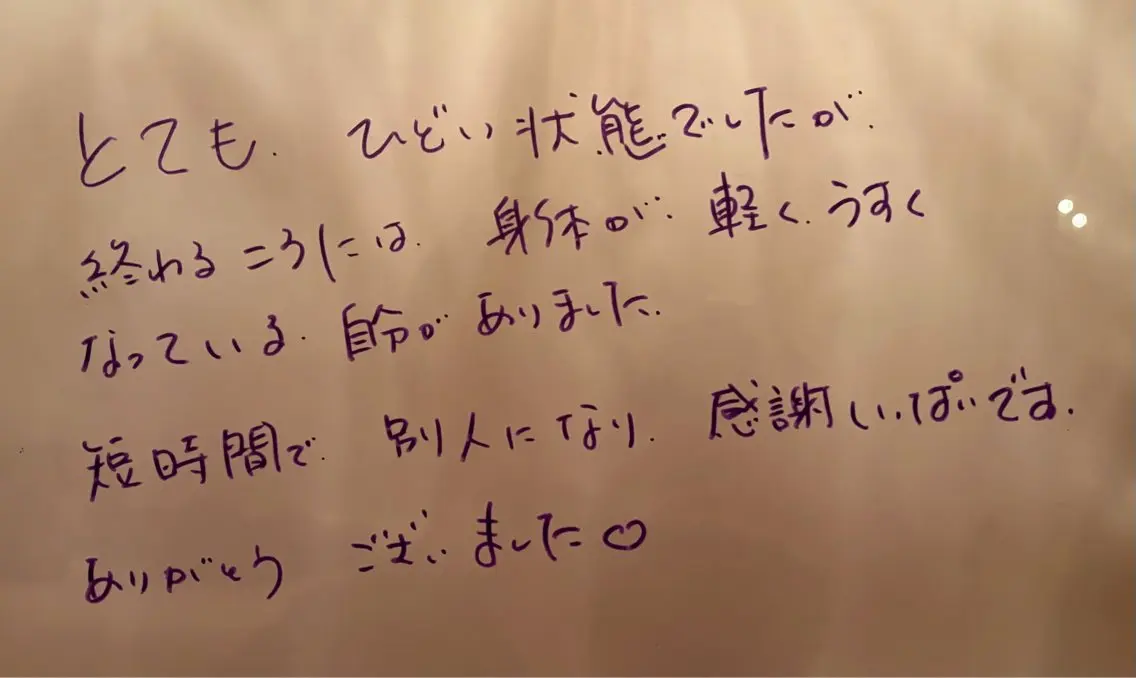 とても、ひどい状態でしたが、
終わるころには、身体が、軽く、うすく
なっている、自分が ありました。
短時間で、別人になり、感謝いっぱいです。
ありがとう ございました♡